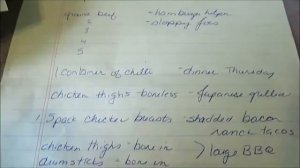 ground beef - hamburger helper
2 - sloppy joes
3
4
5
1 container of chilli - dinner Thursday
chicken thighs - boneless - Japanese grillin
1. 5 pack chicken breasts - shredded bacon
ranch tacos
chicken thighs - bone in
> large BBQ
drumsticks - bone in